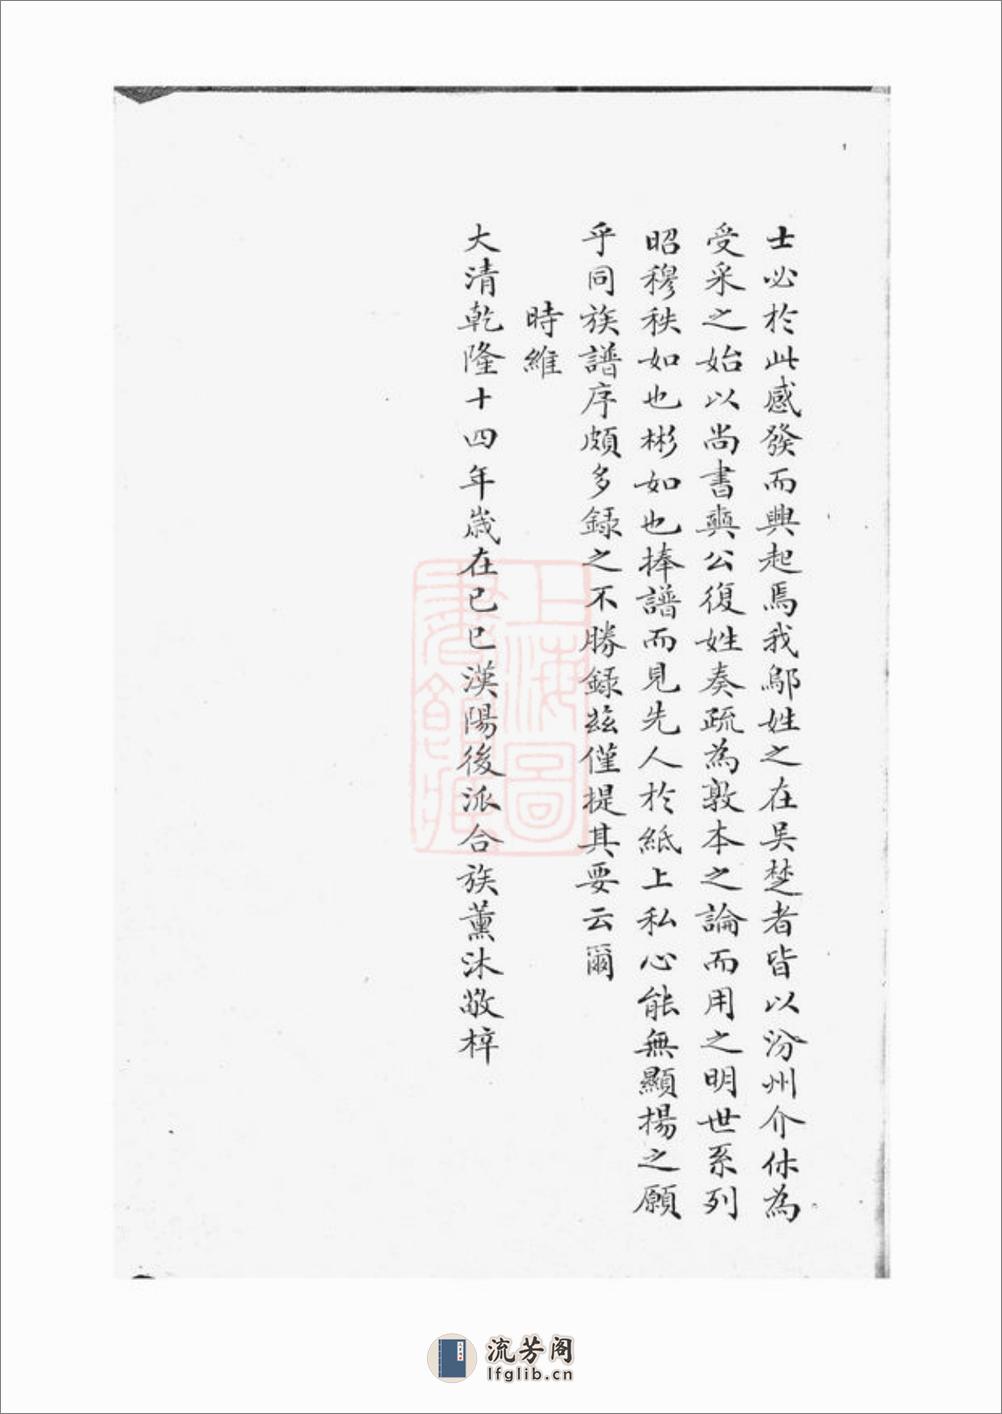 士必於此感發而興起焉我鄔姓之在吴楚者皆以汾州介休為
受采之始以尚書爽公復姓奏疏為敦本之論而用之明世系列
昭穆秩如也彬如也捧譜而見先人於紙上私心能無顯揚之願
乎同族譜序頗多録之不勝録兹僅提其要云爾
時維
大清乾隆十四年歲在己巳漢陽後派合族薰沐敬梓
上海圖書館藏
流芳阁
lfglib.cn